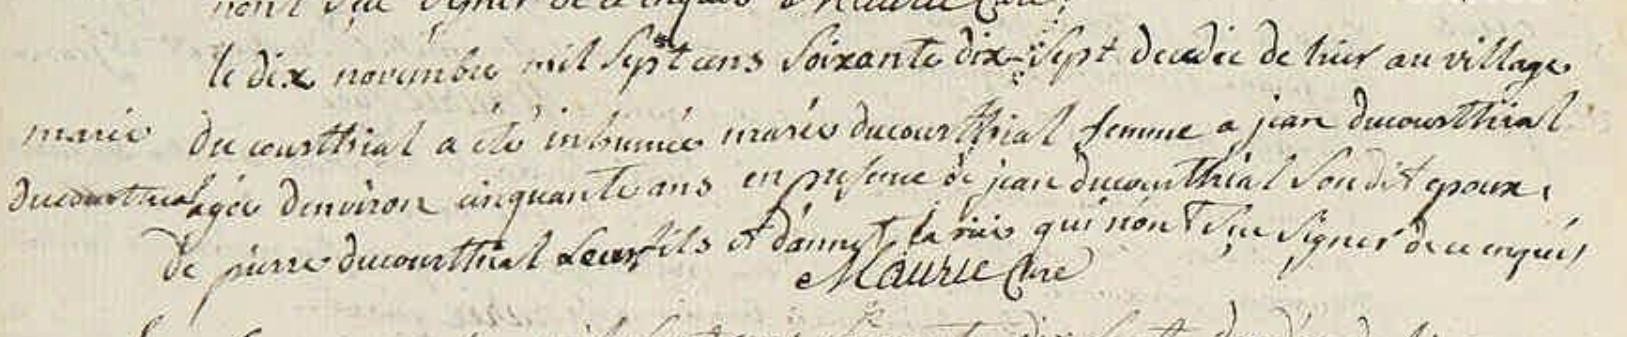 n'ont sçu signer de ce enquis Maurie Curé
le dix novembre mil sept cens soixante dix-sept decedée de hier au village
marie
du courthial a été inhumée marie ducourthial femme a jean ducourthial
ducourthial
agée denviron cinquante ans en presence de jean ducourthial son dit epoux,
de pierre ducourthial leur fils et d'annet qui n'ont sçu signer de ce enquis
Maurie Curé